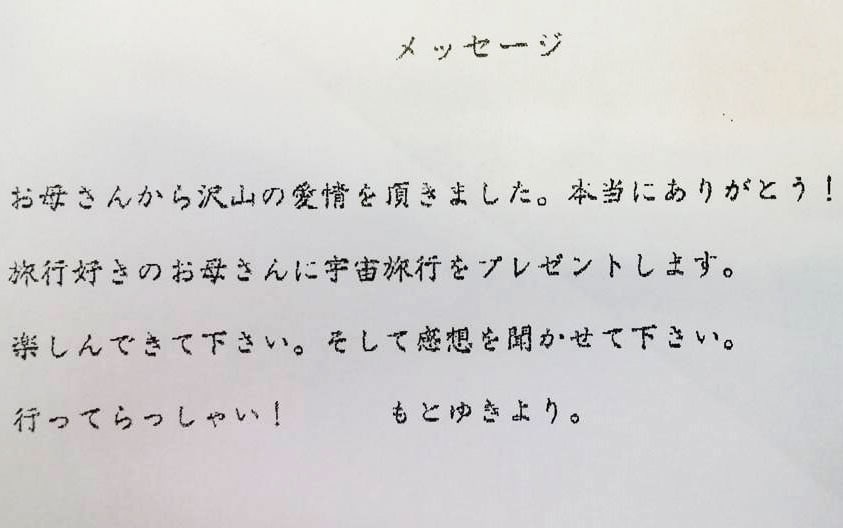 メッセージ
お母さんから沢山の愛情を頂きました。本当にありがとう！
旅行好きのお母さんに宇宙旅行をプレゼントします。
楽しんできて下さい。そして感想を聞かせて下さい。
行ってらっしゃい！　　　もとゆきより。